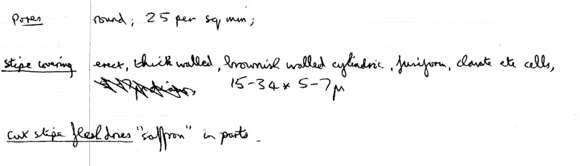 Pores round; 25 per sq mm;
stipe covering erect, thick walled, brownish walled cylindric, fusiform, clavate etc cells,
15-34 x 5-7μ
cut stipe flesh dries "saffron" in parts.